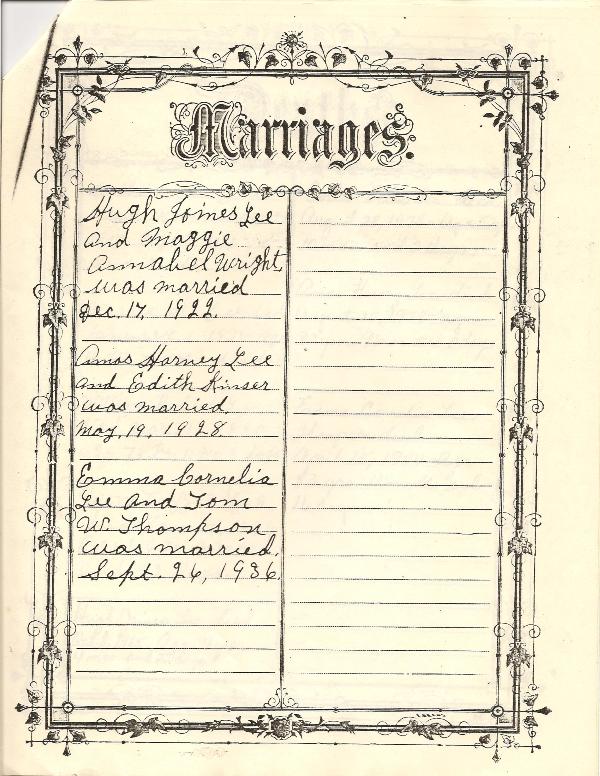 Marriages.
Hugh Joines Lee
and Maggie
Annabel Wright
was married
Dec. 17, 1922.
Amos Harvey Lee
and Edith Kinser
was married.
May, 19, 1928
Emma Cornelia
Lee and Tom
W. Thompson
was married.
Sept. 26, 1936.